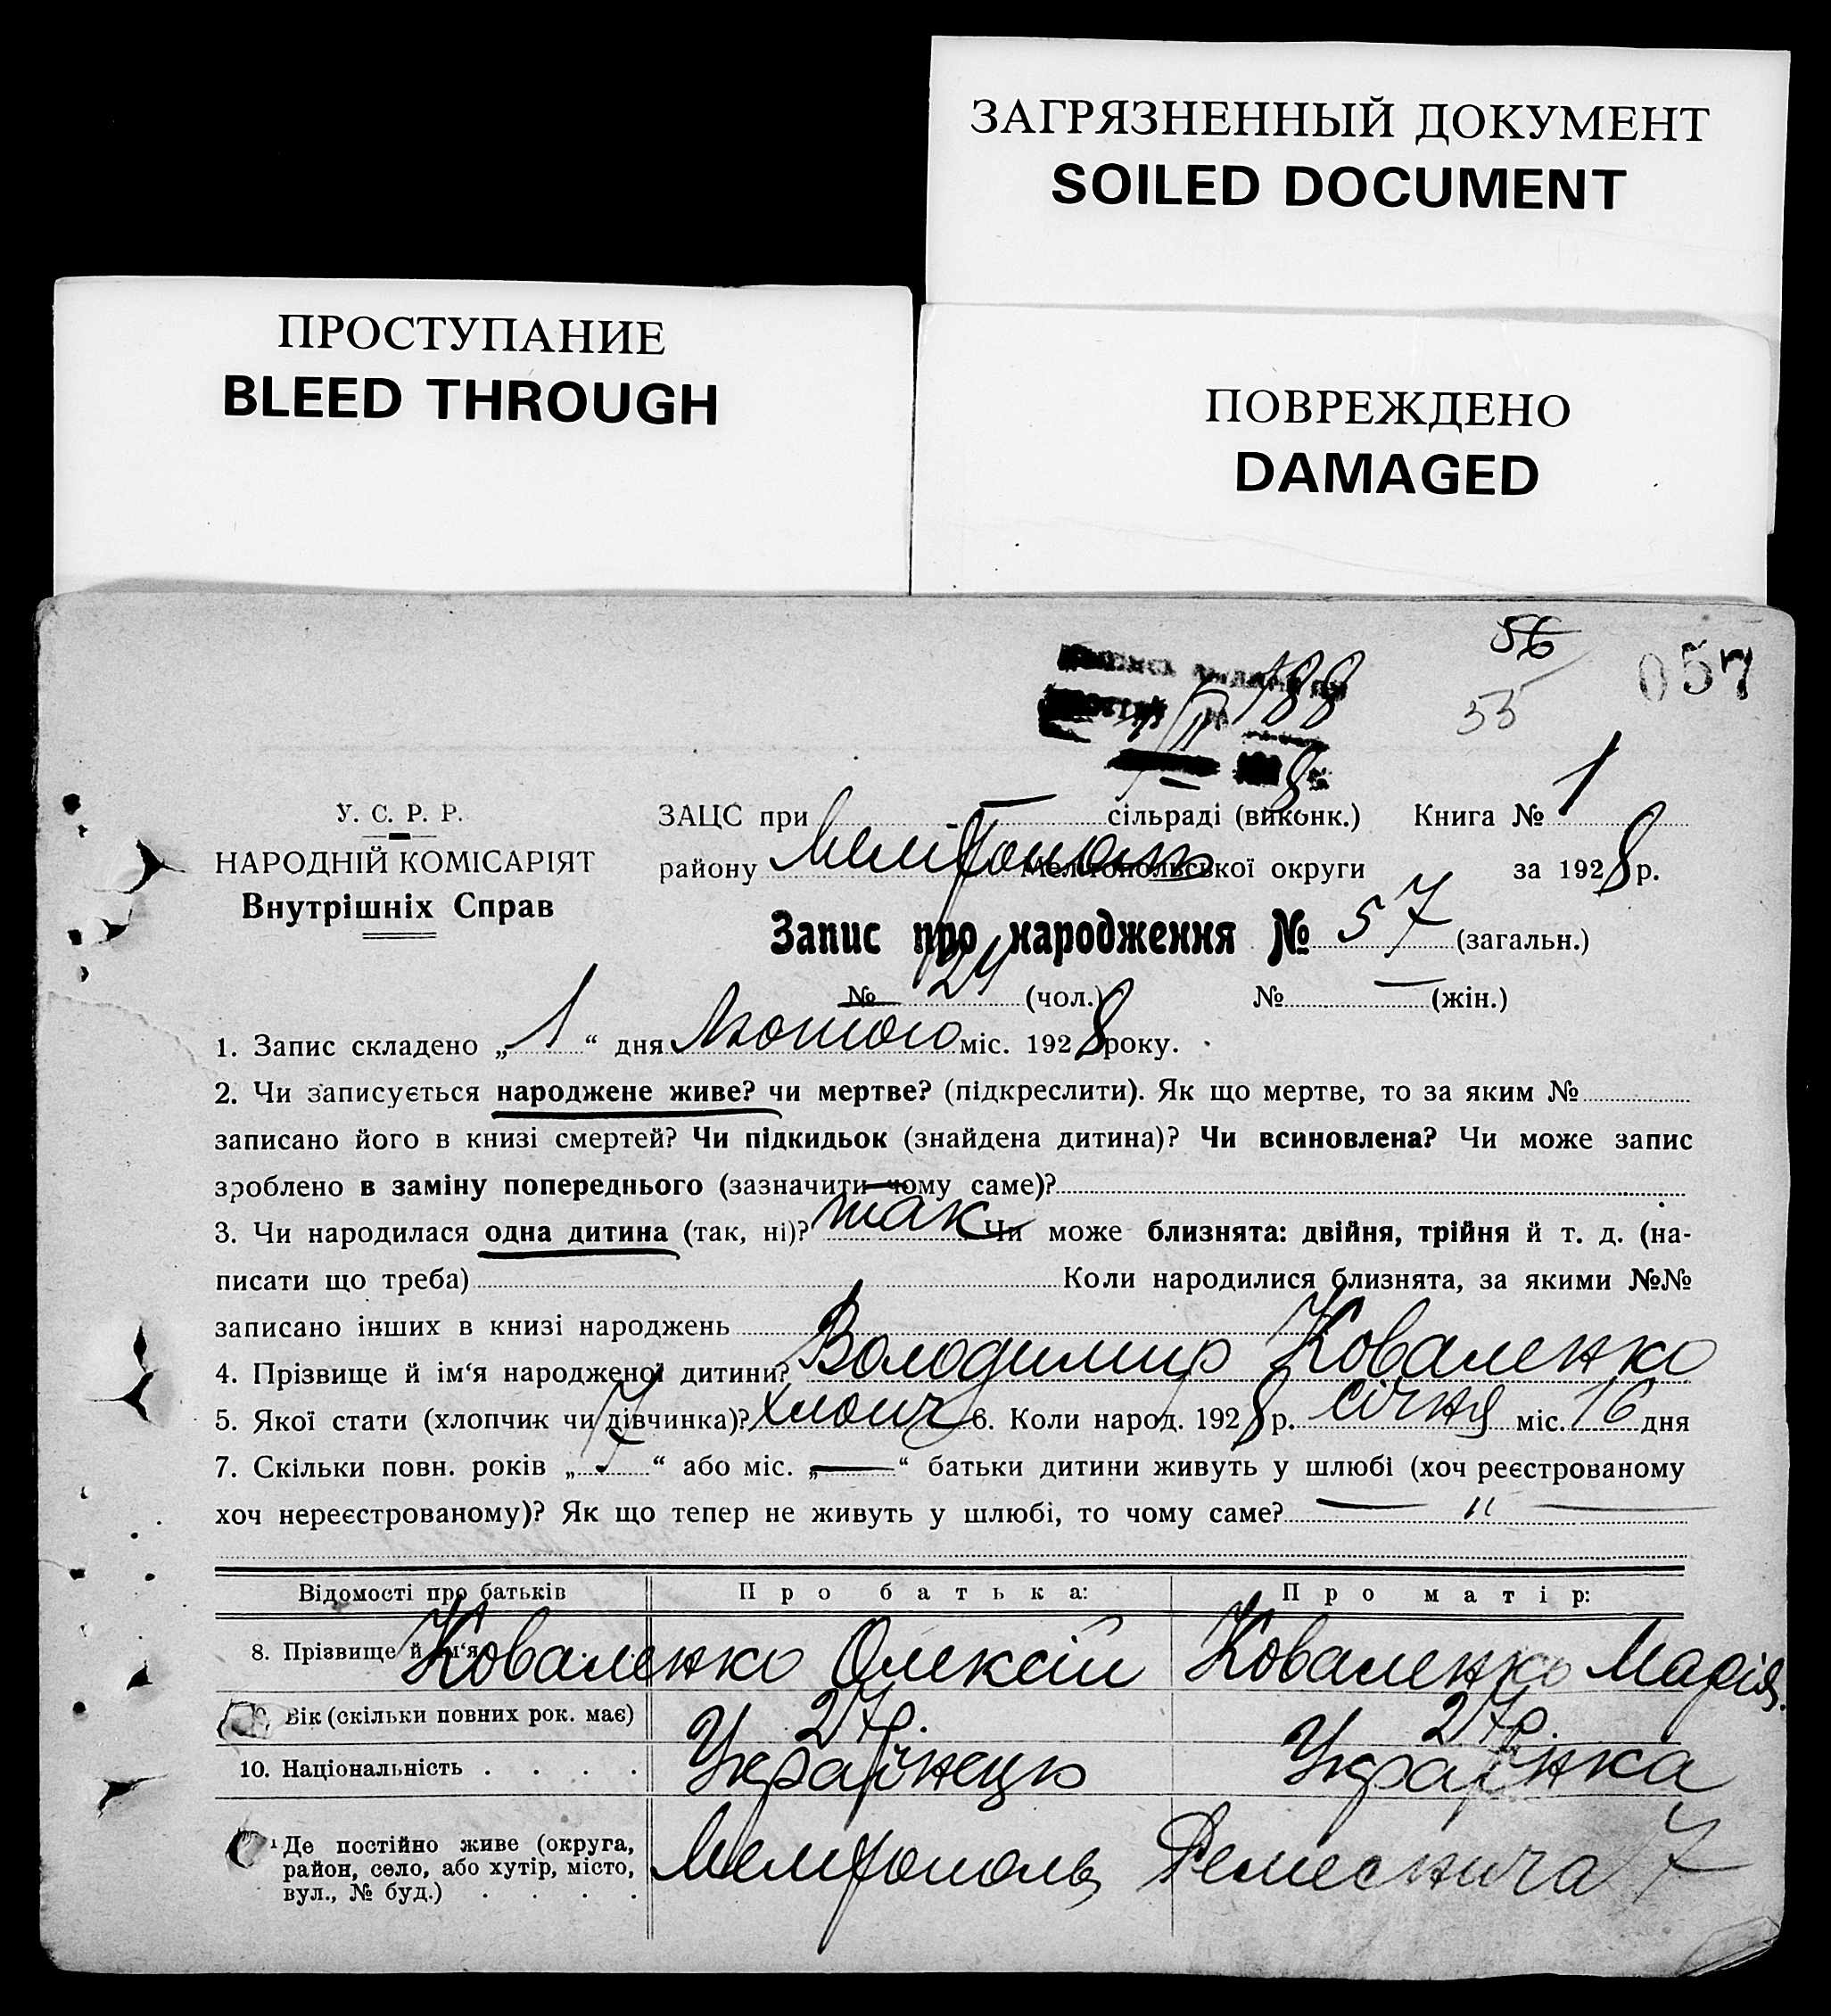 ЗАГРЯЗНЕННЫЙ ДОКУМЕНТ
SOILED DOCUMENT
ПРОСТУПАНИЕ
BLEED THROUGH
ПОВРЕЖДЕНО
DAMAGED
56
55
057
188
У. С. Р. Р.
НАРОДНІЙ КОМІСАРІЯТ
Внутрішніх Справ
ЗАЦС при — сільраді (виконк.) Книга № 1
району Мелітополь Мелітопольської округи за 1928 р.
Запис про народження № 57 (загальн.)
№ 24 (чол.) № — (жін.)
1. Запис складено „1“ дня Лютого міс. 1928 року.
2. Чи записується народжене живе? чи мертве? (підкреслити). Як що мертве, то за яким №
записано його в книзі смертей? Чи підкидьок (знайдена дитина)? Чи всиновлена? Чи може запис
зроблено в заміну попереднього (зазначити чому саме)?
3. Чи народилася одна дитина (так, ні)? так Чи може близнята: двійня, трійня й т. д. (на-
писати що треба) Коли народилися близнята, за якими №№
записано інших в книзі народжень
4. Прізвище й ім‘я народженої дитини? Володимир Коваленко
5. Якої стати (хлопчик чи дівчинка)? хлопч 6. Коли народ. 1928 р. січня міс. 16 дня
7. Скільки повн. років „7“ або міс. „—“ батьки дитини живуть у шлюбі (хоч реєстрованому
хоч нереєстрованому)? Як що тепер не живуть у шлюбі, то чому саме? — „ —
Відомості про батьків Про батька: Про матір:
8. Прізвище й ім‘я Коваленко Олексій Коваленко Марія.
Вік (скільки повних рок. має) 27р. 27р.
10. Національність . . . . Українець Українка
Де постійно живе (округа,
район, село, або хутір, місто,
вул., № буд.) . . . . Мелітополь Ремеснича 7